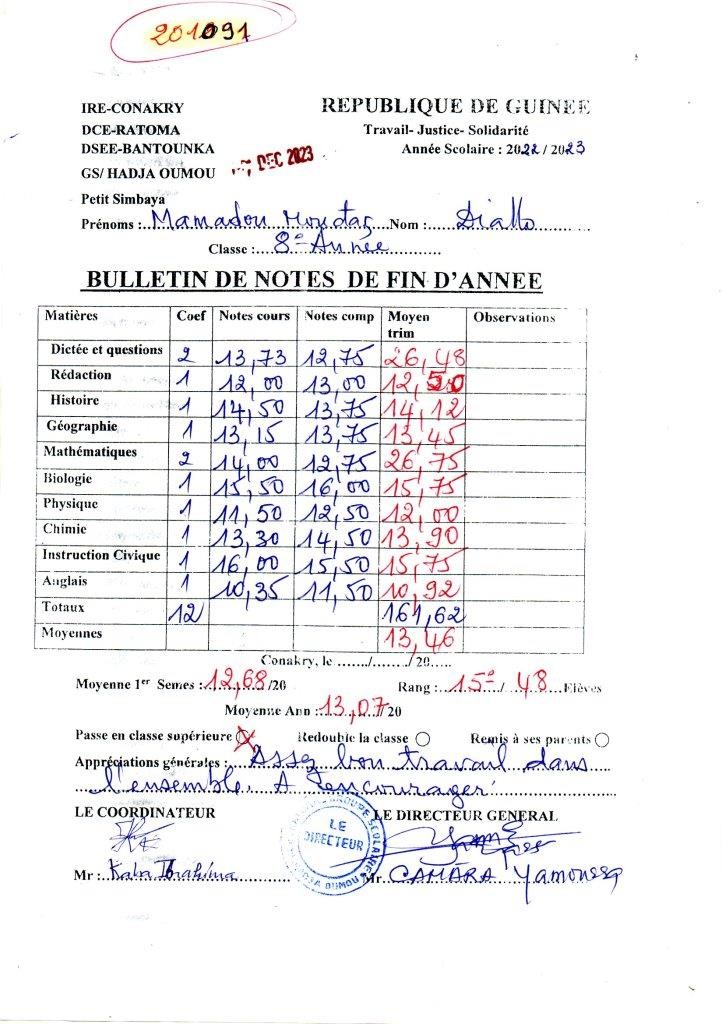 201091
IRE-CONAKRY REPUBLIQUE DE GUINEE
DCE-RATOMA Travail- Justice- Solidarité
DSEE-BANTOUNKA Année Scolaire : 2022 / 2023
GS/ HADJA OUMOU DEC 2023
Petit Simbaya
Prénoms :..Mamadou Moctar Nom :..... Diallo
Classe :....8e Année
BULLETIN DE NOTES DE FIN D'ANNEE
Matières Coef Notes cours Notes comp Moyen trim Observations
Dictée et questions 2 13,73 12,75 26,48
Rédaction 1 12,00 13,00 12,50
Histoire 1 14,50 13,75 14,12
Géographie 1 13,15 13,75 13,45
Mathématiques 2 14,00 12,75 26,75
Biologie 1 15,50 16,00 15,75
Physique 1 11,50 12,50 12,00
Chimie 1 13,30 14,50 13,90
Instruction Civique 1 16,00 15,50 15,75
Anglais 1 10,35 11,50 10,92
Totaux 12 161,62
Moyennes 13,46
Conakry, le ......../......../ 20.....
Moyenne 1er Semes :.12,68/20 Rang :..15e../ 48 Elèves
Moyenne Ann :.13,07/ 20
Passe en classe supérieure Redouble la classe Remis à ses parents
Appréciations générales : Assez bon travail dans
l'ensemble. A encourager
LE COORDINATEUR LE DIRECTEUR GENERAL
LE DIRECTEUR
GROUPE SCOLAIRE
OUMOU
Mr : Kaba Ibrahima Mr CAMARA